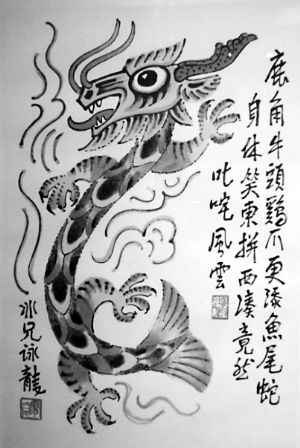 鹿角牛頭鷄爪更添魚尾蛇
身体笑東拼西湊竟然
叱咤風雲
冰兄詠龍